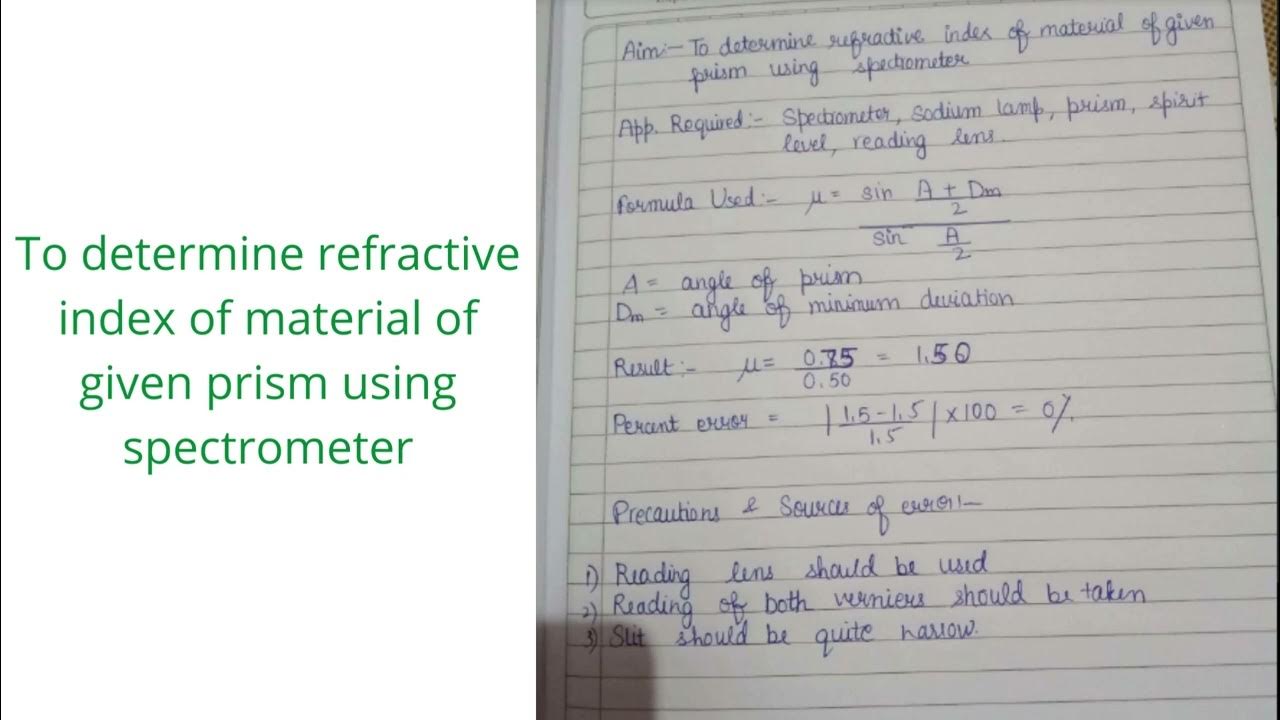 To determine refractive
index of material of
given prism using
spectrometer
Aim:- To determine refractive index of material of given
prism using spectrometer
App. Required:- Spectrometer, sodium lamp, prism, spirit
level, reading lens.
Formula Used:- μ = sin A + Dm
2
sin A
2
A = angle of prism
Dm = angle of mininum deviation
Result:- μ = 0.75 = 1.50
0.50
Percent error = |1.5-1.5| × 100 = 0%.
1.5
Precautions & Sources of error:-
1) Reading lens should be used
2) Reading of both verniers should be taken
3) Slit should be quite narrow.